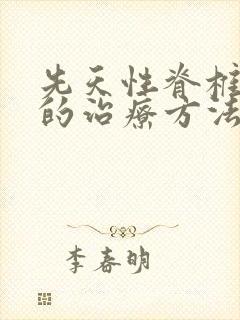 先天性脊椎
的治療方法
李春明